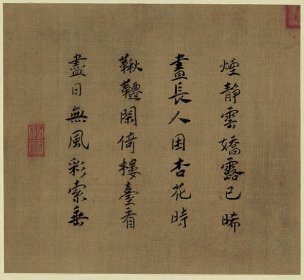 煙靜雲嬌露已晞
晝長人困杏花時
鞦韆閑倚樓臺看
盡日無風彩索垂